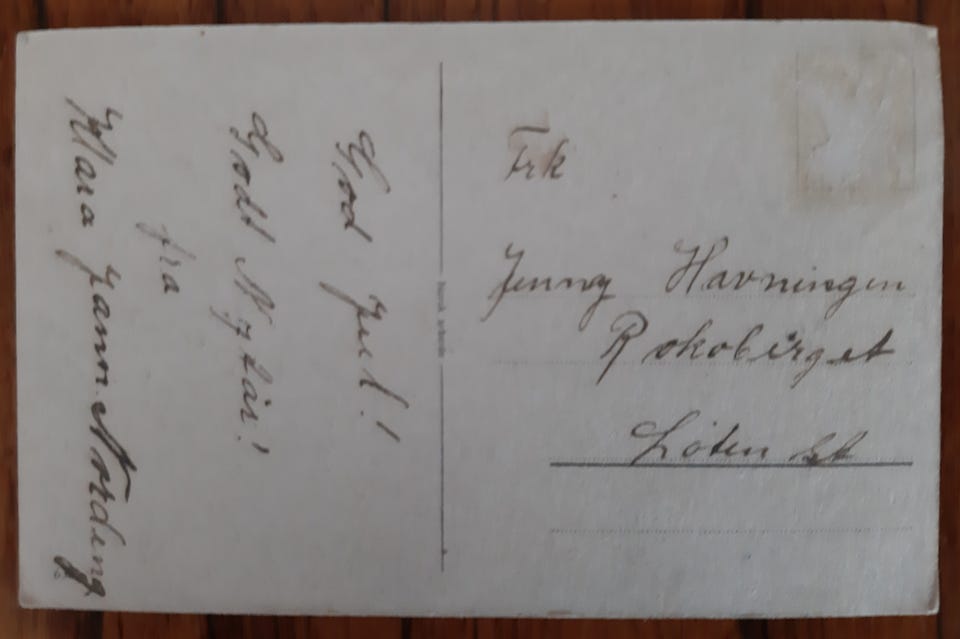 God Jul!
Godt Nyttår!
fra
Klara
Frk
Jenny Havningen
Rokobirget
Løten St